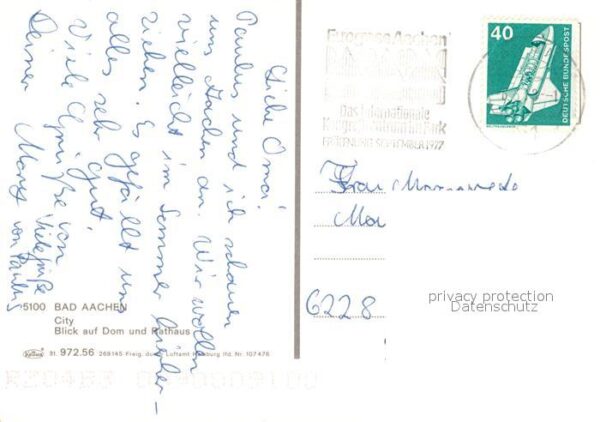 Liebe Oma!
Paulus und ich schauen
uns Aachen an. Wir wollen
vielleicht im Sommer hierher-
ziehen. Es gefällt uns
alles sehr gut.
Viele Grüße von
Deiner
Viele Grüße
von Paulus
5100 BAD AACHEN
City
Blick auf Dom und Rathaus
Bl. 972.56 269145 Freig. durch Luftamt Hamburg lfd. Nr. 107476
Eurogress Aachen
Das internationale
Kongreßzentrum im Park
ERÖFFNUNG SEPTEMBER 1977
40
DEUTSCHE BUNDESPOST
Frau
6228
privacy protection
Datenschutz